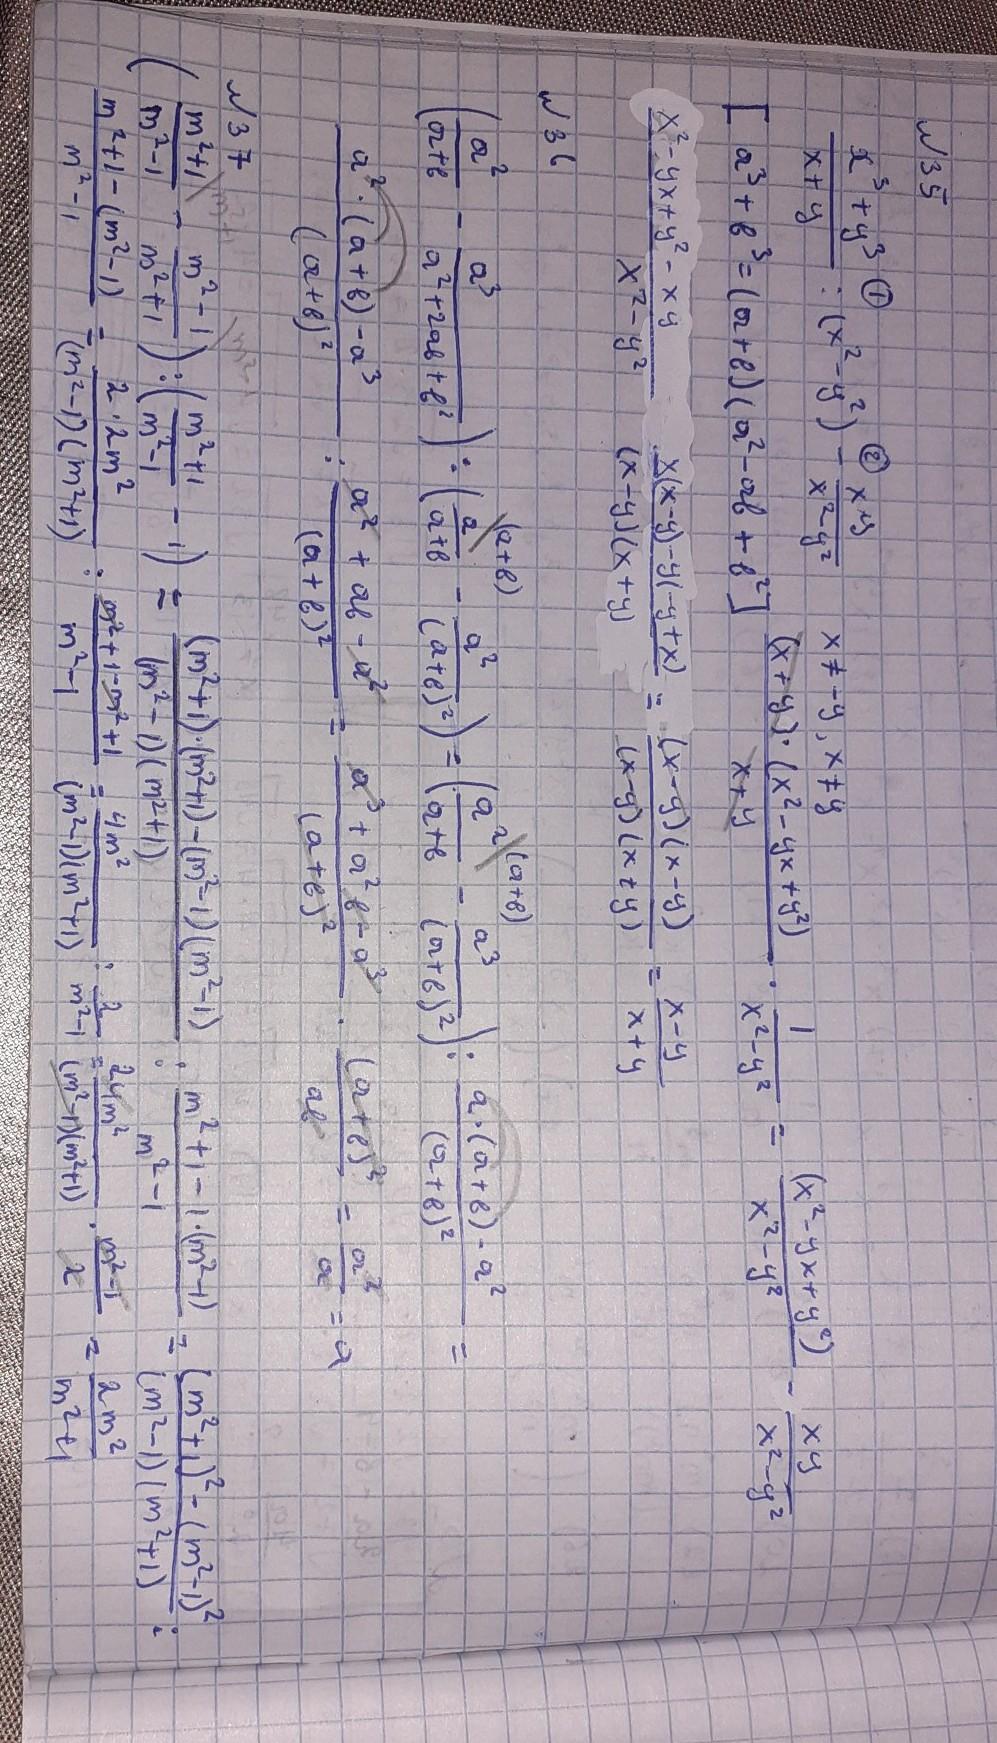 N35
x³+y³/x+y : (x²-y²) - xy/x²-y² x≠-y, x≠y
① ②
[a³+b³=(a+b)(a²-ab+b²)] (x+y)·(x²-yx+y²)/x+y · 1/x²-y² = (x²-yx+y²)/x²-y² - xy/x²-y²
x²-yx+y²-xy/x²-y² x(x-y)-y(-y+x)/(x-y)(x+y) = (x-y)(x-y)/(x-y)(x+y) = x-y/x+y
N36
(a²/a+b - a³/a²+2ab+b²) : (a/a+b \(a+b) - a²/(a+b)²) = (a²/a+b \(a+b) - a³/(a+b)²) : a·(a+b)-a²/(a+b)² =
a²·(a+b)-a³/(a+b)² : a²+ab-a²/(a+b)² = a³+a²b-a³/(a+b)² · (a+b)²/ab = a²/a = a
N37
(m²+1/m²-1 - m²-1/m²+1) : (m²+1/m²-1 - 1) = (m²+1)·(m²+1)-(m²-1)(m²-1)/(m²-1)(m²+1) : m²+1-1·(m²-1)/m²-1 = (m²+1)²-(m²-1)²/(m²-1)(m²+1) :
m²+1-(m²-1)/m²-1 = 2·2m²/(m²-1)(m²+1) : m²+1-m²+1/m²-1 = 4m²/(m²-1)(m²+1) : 2/m²-1 = 24m²/(m²-1)(m²+1) · m²-1/2 = 2m²/m²+1